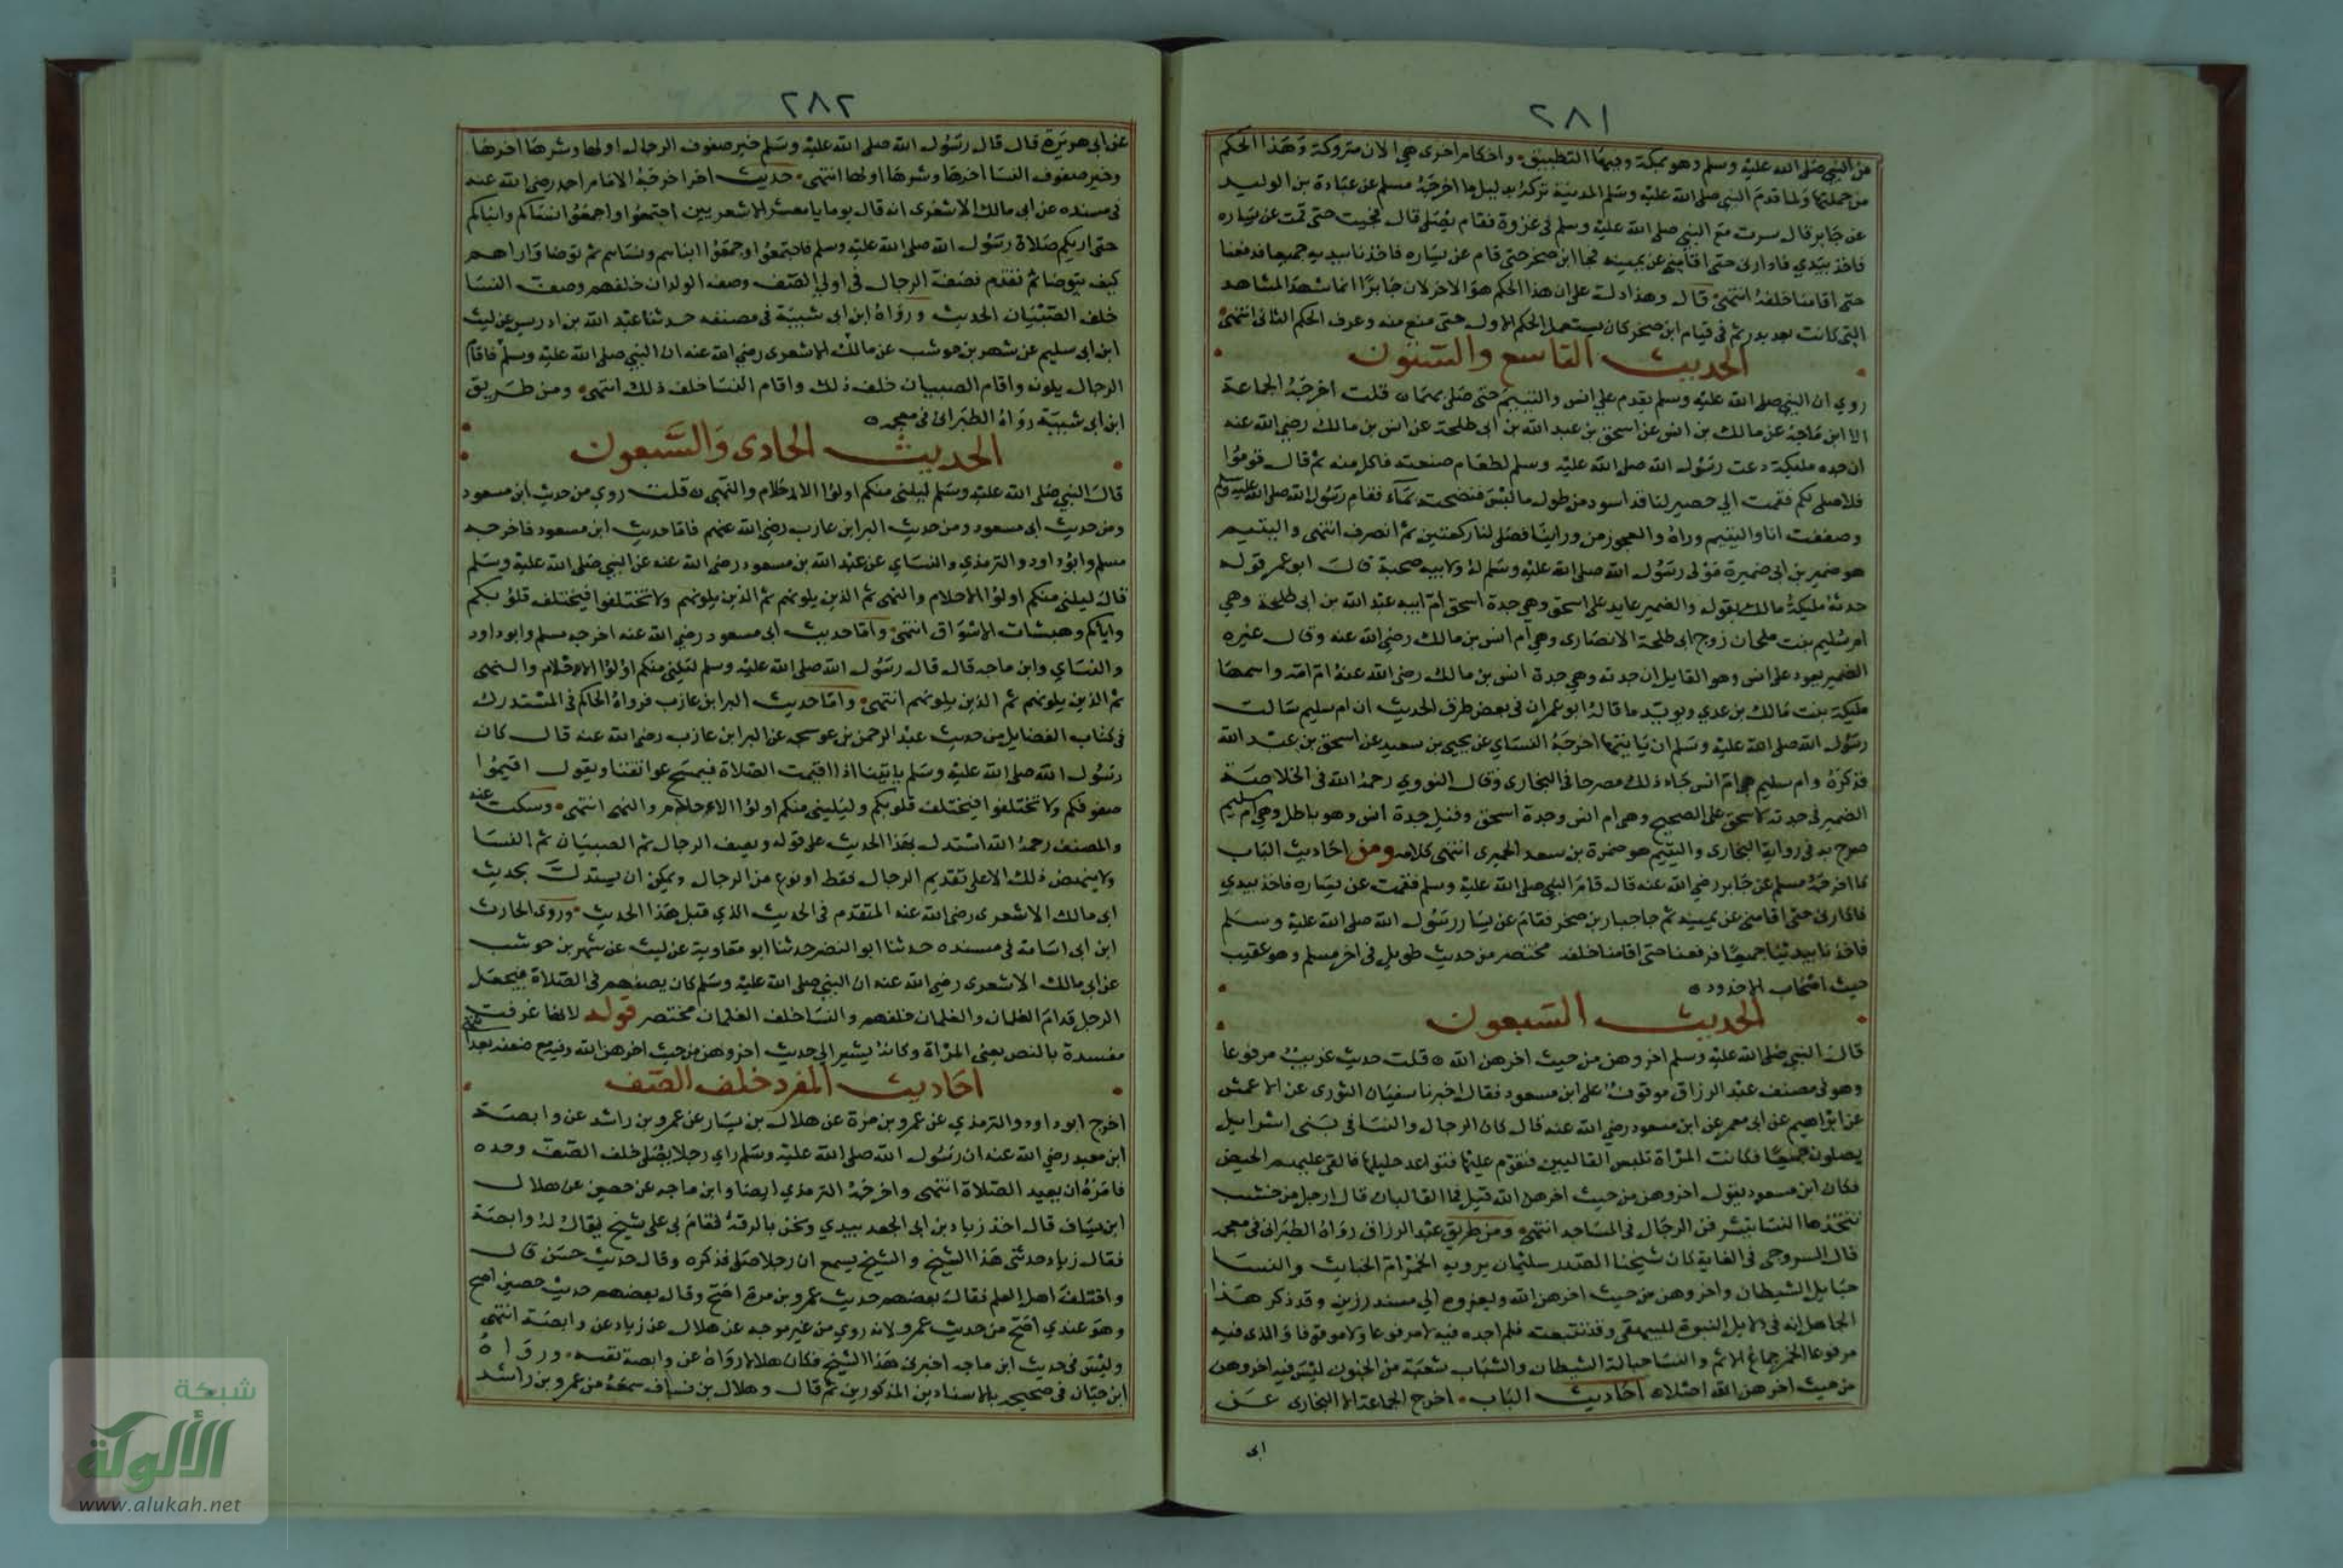 ٢٨١
من النبي صلى الله عليه وسلم وهو بمكة وفيها التطبيق واحكام اخرى هي الان متروكة وهذا الحكم
من جملتها ولما قدم النبي صلى الله عليه وسلم المدينة تركه بدليل ما اخرجه مسلم عن عبادة بن الوليد
عن جابر قال سرت مع النبي صلى الله عليه وسلم في غزوة فقام يصلي قال فجيت حتى قمت عن يساره
فاخذ بيدي فادارني حتى اقامني عن يمينه فجا ابن صخر حتى قام عن يساره فاخذنا بيديه جميعا فدفعنا
حتى اقامنا خلفه انتهى قال وهذا دلت على ان هذا الحكم هو الاخر لان جابرا انما شهد المشاهد
التي كانت بعد بدر ثم في قيام ابن صخر كان يستعمل الحكم الاول حتى منع منه وعرف الحكم الثاني انتهى
الحديث التاسع والستون
روي ان النبي صلى الله عليه وسلم تقدم على انس واليتيم حتى صلى بهما قلت اخرجه الجماعة
الا ابن ماجة عن مالك بن انس عن اسحق بن عبد الله بن ابي طلحة عن انس بن مالك رضي الله عنه
ان جدته مليكة دعت رسول الله صلى الله عليه وسلم لطعام صنعته فاكل منه ثم قال قوموا
فلاصلي بكم فقمت الي حصير لنا قد اسود من طول ما لبس فنضحته بماء فقام رسول الله صلى الله عليه وسلم
وصففت انا واليتيم وراه والعجوز من وراينا فصلى لنا ركعتين ثم انصرف انتهى واليتيم
هو ضمير بن ابي ضميرة مولى رسول الله صلى الله عليه وسلم له ولابيه صحبة قال ابو عمر قوله
جدته مليكة مالك يقوله والضمير عايد على اسحق وهي جدة اسحق ام ابيه عبد الله بن ابي طلحة وهي
ام سليم بنت ملحان زوج ابي طلحة الانصاري وهي ام انس بن مالك رضي الله عنه وقال غيره
الضمير يعود على انس وهو القايل ان جدته وهي جدة انس بن مالك رضي الله عنه ام امه واسمها
مليكة بنت مالك بن عدي ويويد ما قاله ابو عمر ان في بعض طرق الحديث ان ام سليم سالت
رسول الله صلى الله عليه وسلم ان ياتيها اخرجه النساي عن يحيى بن سعيد عن اسحق بن عبد الله
فذكره وام سليم هي ام انس جاء ذلك مصرحا في البخاري وقال النووي رحمه الله في الخلاصة
الضمير في جدته لاسحق على الصحيح وهي ام انس وجدة اسحق وقيل جدة انس وهو باطل وهي ام سليم
صرح به في رواية البخاري واليتيم هو ضمرة بن سعد الحميري انتهى كلامه ومن احاديث الباب
ما اخرجه مسلم عن جابر رضي الله عنه قال قام النبي صلى الله عليه وسلم فقمت عن يساره فاخذ بيدي
فادارني حتى اقامني عن يمينه ثم جا جبار بن صخر فقام عن يسار رسول الله صلى الله عليه وسلم
فاخذنا بيدينا جميعا فدفعنا حتى اقامنا خلفه مختصر من حديث طويل في اخر مسلم وهو عقيب
حديث اصحاب الاخدود
الحديث السبعون
قال النبي صلى الله عليه وسلم اخروهن من حيث اخرهن الله قلت حديث غريب مرفوعا
وهو في مصنف عبد الرزاق موقوف على ابن مسعود فقال اخبرنا سفيان الثوري عن الاعمش
عن ابراهيم عن ابي معمر عن ابن مسعود رضي الله عنه قال كان الرجال والنسا في بني اسرائيل
يصلون جميعا فكانت المراة تلبس القالبين فتقوم عليهما فتواعد خليلها فالقي عليهم الحيض
فكان ابن مسعود يقول اخروهن من حيث اخرهن الله قيل فما القالبان قال ارجل من خشب
تتخذها النسا يتشرفن الرجال في المساجد انتهى ومن طريق عبد الرزاق رواه الطبراني في معجمه
قال السروجي في الغاية كان شيخنا الصدر سليمان يرويه الخمر ام الخبايث والنسا
حبايل الشيطان واخروهن من حيث اخرهن الله ويعزوه الي مسند رزين وقد ذكر هذا
الجاهل انه في دلايل النبوة للبيهقي وقد تتبعته فلم اجده فيه لا مرفوعا ولا موقوفا والذي فيه
مرفوعا الخمر جماع الاثم والنسا حبالة الشيطان والشباب شعبة من الجنون ليس فيه اخروهن
من حيث اخرهن الله اصلا احاديث الباب اخرج الجماعة الا البخاري عن
ابى
٢٨٢
عن ابي هريرة قال قال رسول الله صلى الله عليه وسلم خير صفوف الرجال اولها وشرها اخرها
وخير صفوف النسا اخرها وشرها اولها انتهى حديث اخر اخرجه الامام احمد رضي الله عنه
في مسنده عن ابي مالك الاشعري انه قال يوما يا معشر الاشعريين اجتمعوا واجمعوا نساكم وابناكم
حتى اريكم صلاة رسول الله صلى الله عليه وسلم فاجتمعوا وجمعوا ابناهم ونساهم ثم توضا واراهم
كيف يتوضا ثم تقدم فصف الرجال في اولي الصف وصف الولدان خلفهم وصف النسا
خلف الصبيان الحديث ورواه ابن ابي شيبة في مصنفه حدثنا عبد الله بن ادريس عن ليث
ابن ابي سليم عن شهر بن حوشب عن مالك الاشعري رضي الله عنه ان النبي صلى الله عليه وسلم فاقام
الرجال يلونه واقام الصبيان خلف ذلك واقام النسا خلف ذلك انتهى ومن طريق
ابن ابي شيبة رواه الطبراني في معجمه
الحديث الحادي والسبعون
قال النبي صلى الله عليه وسلم ليلني منكم اولوا الاحلام والنهى قلت روي من حديث ابن مسعود
ومن حديث ابي مسعود ومن حديث البرا بن عازب رضي الله عنهم فاما حديث ابن مسعود فاخرجه
مسلم وابو داود والترمذي والنساي عن عبد الله بن مسعود رضي الله عنه عن النبي صلى الله عليه وسلم
قال ليلني منكم اولوا الاحلام والنهى ثم الذين يلونهم ثم الذين يلونهم ولا تختلفوا فيختلف قلوبكم
واياكم وهيشات الاسواق انتهى واما حديث ابي مسعود رضي الله عنه اخرجه مسلم وابو داود
والنساي وابن ماجه قال قال رسول الله صلى الله عليه وسلم ليلني منكم اولوا الاحلام والنهى
ثم الذين يلونهم ثم الذين يلونهم انتهى واما حديث البرا بن عازب فرواه الحاكم في المستدرك
في كتاب الفضايل من حديث عبد الرحمن بن عوسجه عن البرا بن عازب رضي الله عنه قال كان
رسول الله صلى الله عليه وسلم ياتينا اذا اقيمت الصلاة فيمسح عواتقنا ويقول اقيموا
صفوفكم ولا تختلفوا فيختلف قلوبكم وليليني منكم اولوا الاحلام والنهى انتهى وسكت عنه
والمصنف رحمه الله استدل بهذا الحديث على قوله ويصف الرجال ثم الصبيان ثم النسا
ولا ينهض ذلك الا على تقديم الرجال فقط او نوع من الرجال ويمكن ان يستدل بحديث
ابي مالك الاشعري رضي الله عنه المتقدم في الحديث الذي قبل هذا الحديث وروى الحارث
ابن ابي اسامة في مسنده حدثنا ابو النضر حدثنا ابو معاوية عن ليث عن شهر بن حوشب
عن ابي مالك الاشعري رضي الله عنه ان النبي صلى الله عليه وسلم كان يصفهم في الصلاة فيجعل
الرجل قدام الغلمان والغلمان خلفهم والنسا خلف الغلمان مختصر قوله لانها عرفت
مفسدة بالنص يعني المراة وكانه يشير الي حديث اخروهن من حيث اخرهن الله وفيه مع ضعفه بعد
احاديث المفرد خلف الصف
اخرج ابو داود والترمذي عن عمرو بن مرة عن هلال بن يسار عن عمرو بن راشد عن وابصة
ابن معبد رضي الله عنه ان رسول الله صلى الله عليه وسلم راي رجلا يصلي خلف الصف وحده
فامره ان يعيد الصلاة انتهى واخرجه الترمذي ايضا وابن ماجه عن حصين عن هلال
ابن يساف قال اخذ زياد بن ابي الجعد بيدي ونحن بالرقة فقام بي على شيخ يقال له وابصة
فقال زياد حدثني هذا الشيخ والشيخ يسمع ان رجلا صلى فذكره وقال حديث حسن قال
واختلف اهل العلم فقال بعضهم حديث عمرو بن مرة اصح وقال بعضهم حديث حصين اصح
وهو عندي اصح من حديث عمرو لانه روي من غير وجه عن هلال عن زياد عن وابصة انتهى
وليس في حديث ابن ماجه اخبرني هذا الشيخ فكان هلالا رواه عن وابصة نفسه ورواه
ابن حبان في صحيحه بالاسنادين المذكورين ثم قال وهلال بن يساف سمعه من عمرو بن راشد
شبكة
الألوكة
www.alukah.net